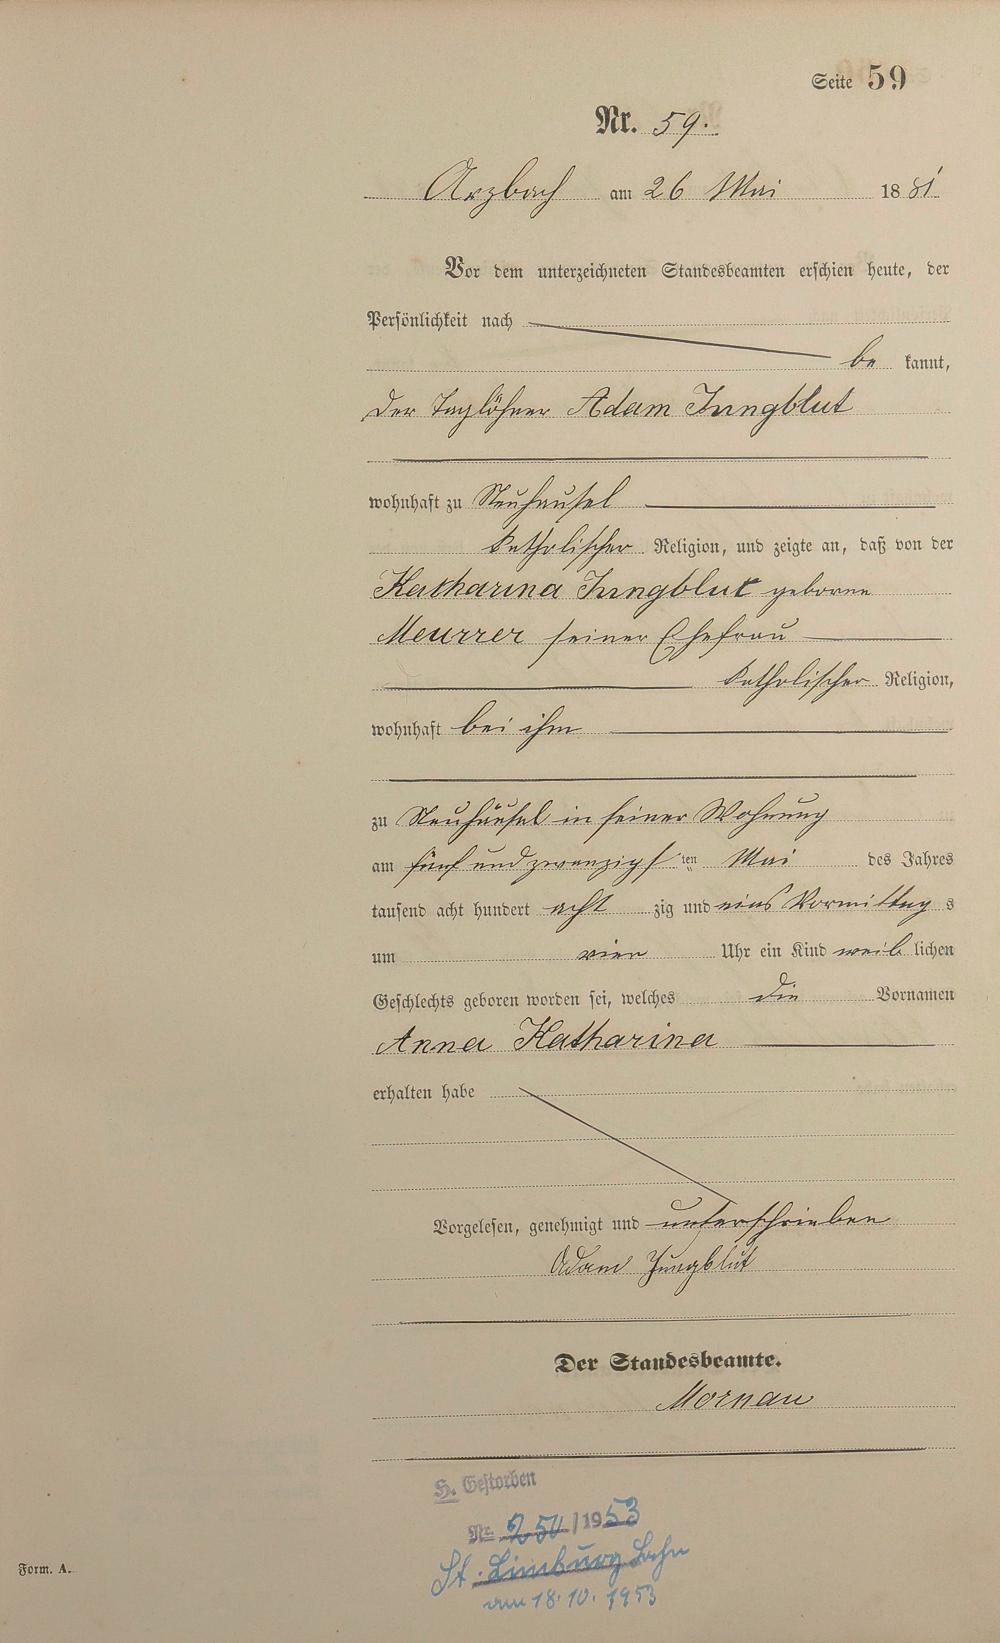 Seite 59
Nr. 59.
Arzbach am 26 Mai 1881
Vor dem unterzeichneten Standesbeamten erschien heute, der
Persönlichkeit nach
be kannt,
der Taglöhner Adam Jungblut
wohnhaft zu Neuhäusel
katholischer Religion, und zeigte an, daß von der
Katharina Jungblut geborne
Meurrer seiner Ehefrau
katholischer Religion,
wohnhaft bei ihm
zu Neuhäusel in seiner Wohnung
am fünf und zwanzigs ten Mai des Jahres
tausend acht hundert acht zig und eins Vormittag s
um vier Uhr ein Kind weib lichen
Geschlechts geboren worden sei, welches die Vornamen
Anna Katharina
erhalten habe
Vorgelesen, genehmigt und unterschrieben
Adam Jungblut
Der Standesbeamte.
Mornau
H. Gestorben
Nr. 250/1953
St. Limburg Lahn
am 18.10.1953
Form. A.